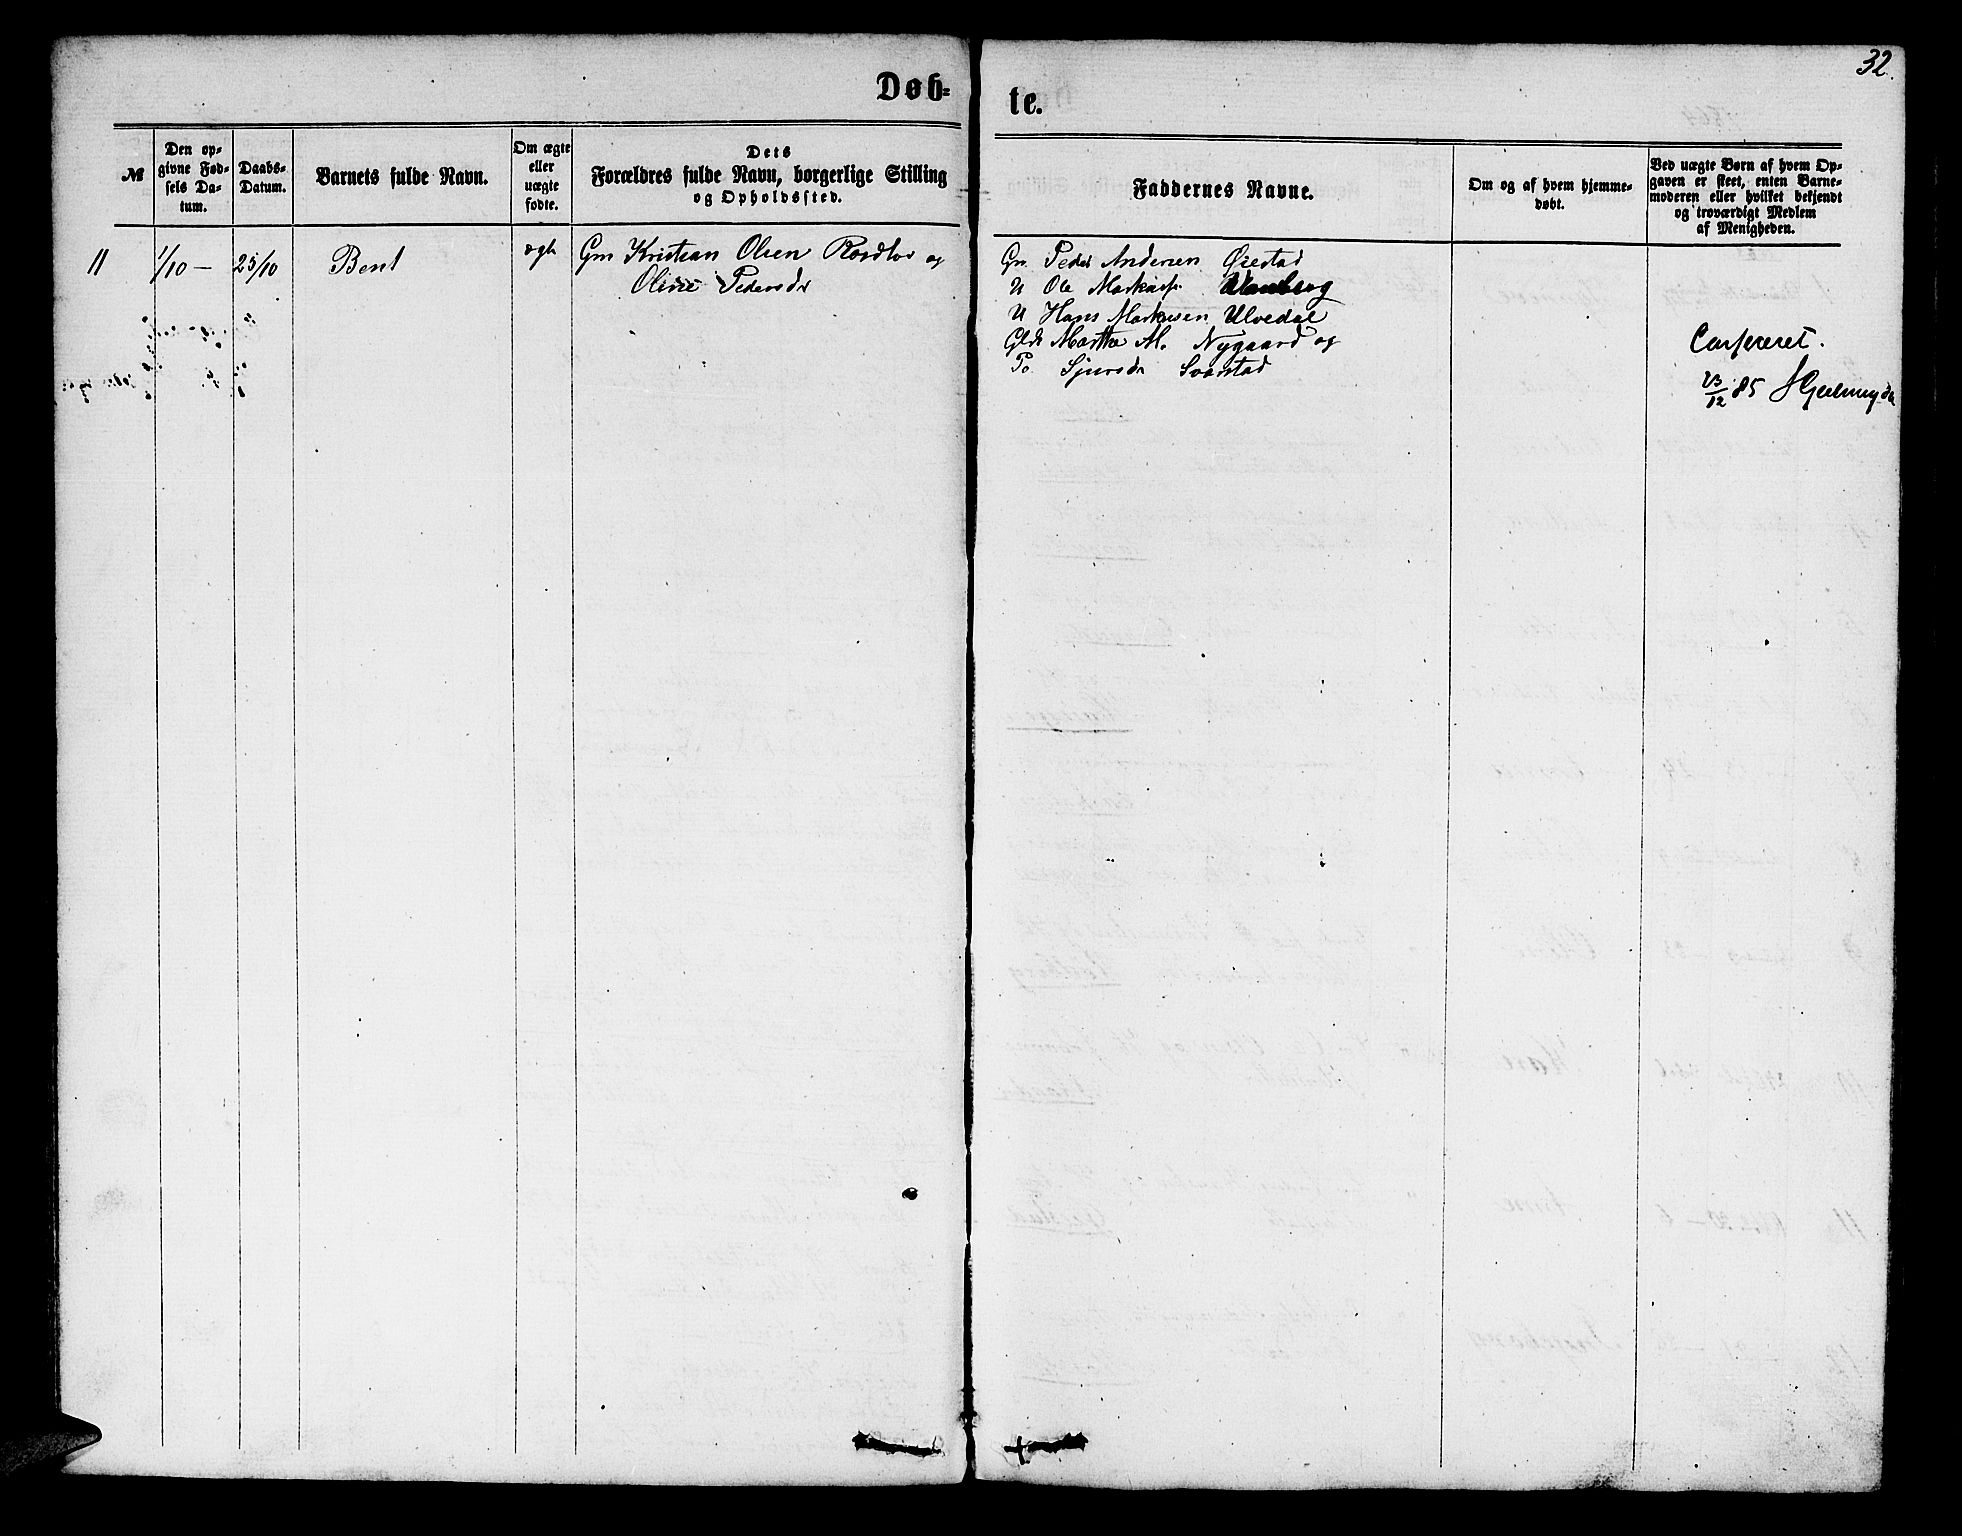 32.
Døb-
te.
№
Den op-
givne Fød-
sels Da-
tum.
Daabs-
Datum.
Barnets fulde Navn.
Om ægte
eller
uægte
fødte.
Dets
Forældres fulde Navn, borgerlige Stilling
og Opholdssted.
Faddernes Navne.
Om og af hvem hjemme-
døbt.
Ved uægte Børn af hvem Op-
gaven er skeet, enten Barne-
moderen eller hvilket bekjendt
og troværdigt Medlem
af Menigheden.
11
1/10 -
25/10
Bent
ægte
Gm Kristian Olsen og
Pedersdr
Gm Peder Andersen Øiestad
U Ole
U Hans Markusen Ulvedal
Martha M. Nygaard og
Sjursdr Svarstad
Confereret.
23/12 85